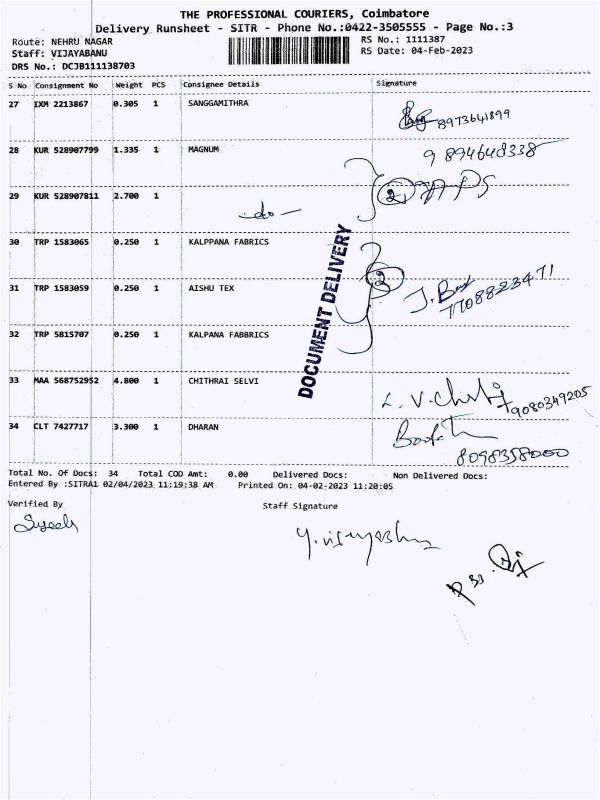 THE PROFESSIONAL COURIERS, Coimbatore
Delivery Runsheet - SITR - Phone No.:0422-3505555 - Page No.:3
Route: NEHRU NAGAR RS No.: 1111387
Staff: VIJAYABANU RS Date: 04-Feb-2023
DRS No.: DCJB111138703
S No Consignment No Weight PCS Consignee Details Signature
27 IXM 2213867 0.305 1 SANGGAMITHRA
8973641899
28 KUR 528907799 1.335 1 MAGNUM 9894648338
29 KUR 528907811 2.700 1 2
-do-
30 TRP 1583065 0.250 1 KALPPANA FABRICS
31 TRP 1583059 0.250 1 AISHU TEX
7708823471
32 TRP 5815707 0.250 1 KALPANA FABBRICS
DOCUMENT DELIVERY
33 MAA 568752952 4.800 1 CHITHRAI SELVI
9080349205
34 CLT 7427717 3.300 1 DHARAN
8098358000
Total No. Of Docs: 34 Total COD Amt: 0.00 Delivered Docs: Non Delivered Docs:
Entered By :SITRA1 02/04/2023 11:19:38 AM Printed On: 04-02-2023 11:20:05
Verified By Staff Signature